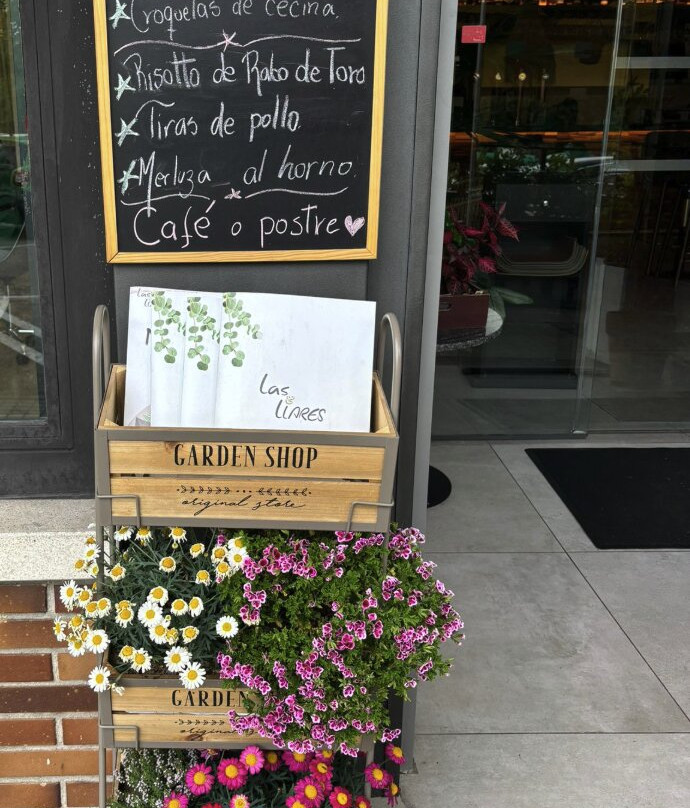 Croquetas de cecina.
Risotto de Rabo de Toro
Tiras de pollo.
Merluza al horno.
Café o postre
Las
&
LLARES
GARDEN SHOP
original store
GARDEN